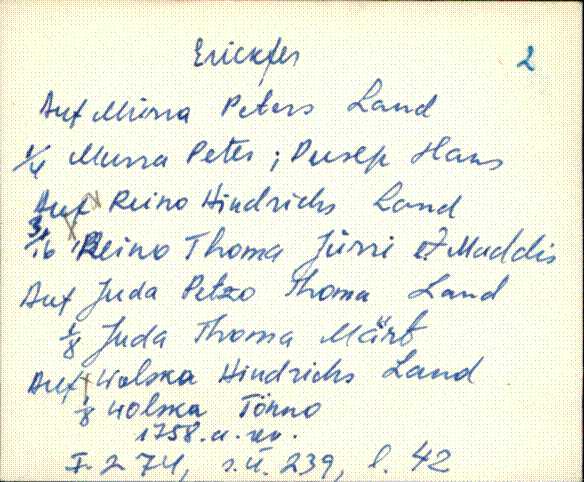 Erickfer 2
Auf Mürra Peters Land
1/4 Murra Peter; Pusep Hans
Auf Reino Hindrichs Land
3/16 Reino Thoma Jürri et Maddis
Auf Juda Petzo Thoma Land
1/8 Juda Thoma Märt
Auf Wolska Hindrichs Land
1/8 Wolska Tönno
1758. a. rev.
F. 274, s.ü. 239, l. 42